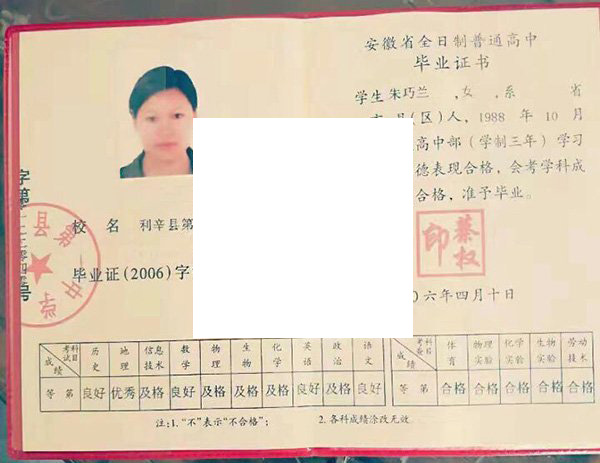 安徽省全日制普通高中
毕业证书
学生 朱巧兰 ,女 ,系 省
县(区)人, 1988 年 10 月
高中部(学制三年)学习
德表现合格,会考学科成
合格,准予毕业。
校 名 利辛县第
毕业证(2006)字
蔡权印
06年四月十日
考试科目 历史 地理 信息技术 数学 物理 生物 化学 英语 政治 语文
成绩等第 良好 优秀 及格 良好 及格 及格 及格 良好 及格 良好
考查科目 体育 物理实验 化学实验 生物实验 劳动技术
成绩等第 合格 合格 合格 合格 合格
注:1. “不”表示“不合格”; 2. 各科成绩涂改无效.